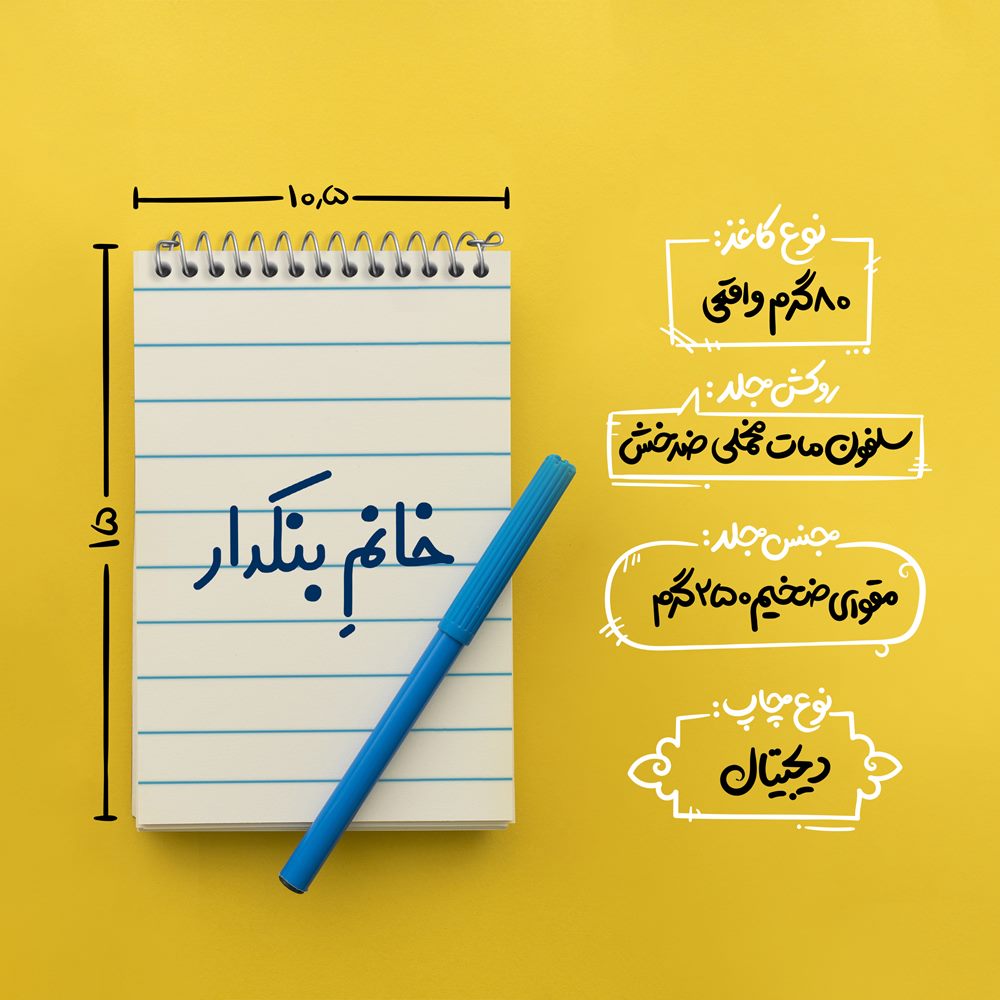 ۱۰٫۵
۱۵
خانمِ بنکدار
نوع کاغذ:
۸۰گرم واقعی
روکش جلد:
سلفون مات مخملی ضدخش
جنس جلد:
مقوای ضخیم ۲۵۰گرم
نوع چاپ:
دیجیتال